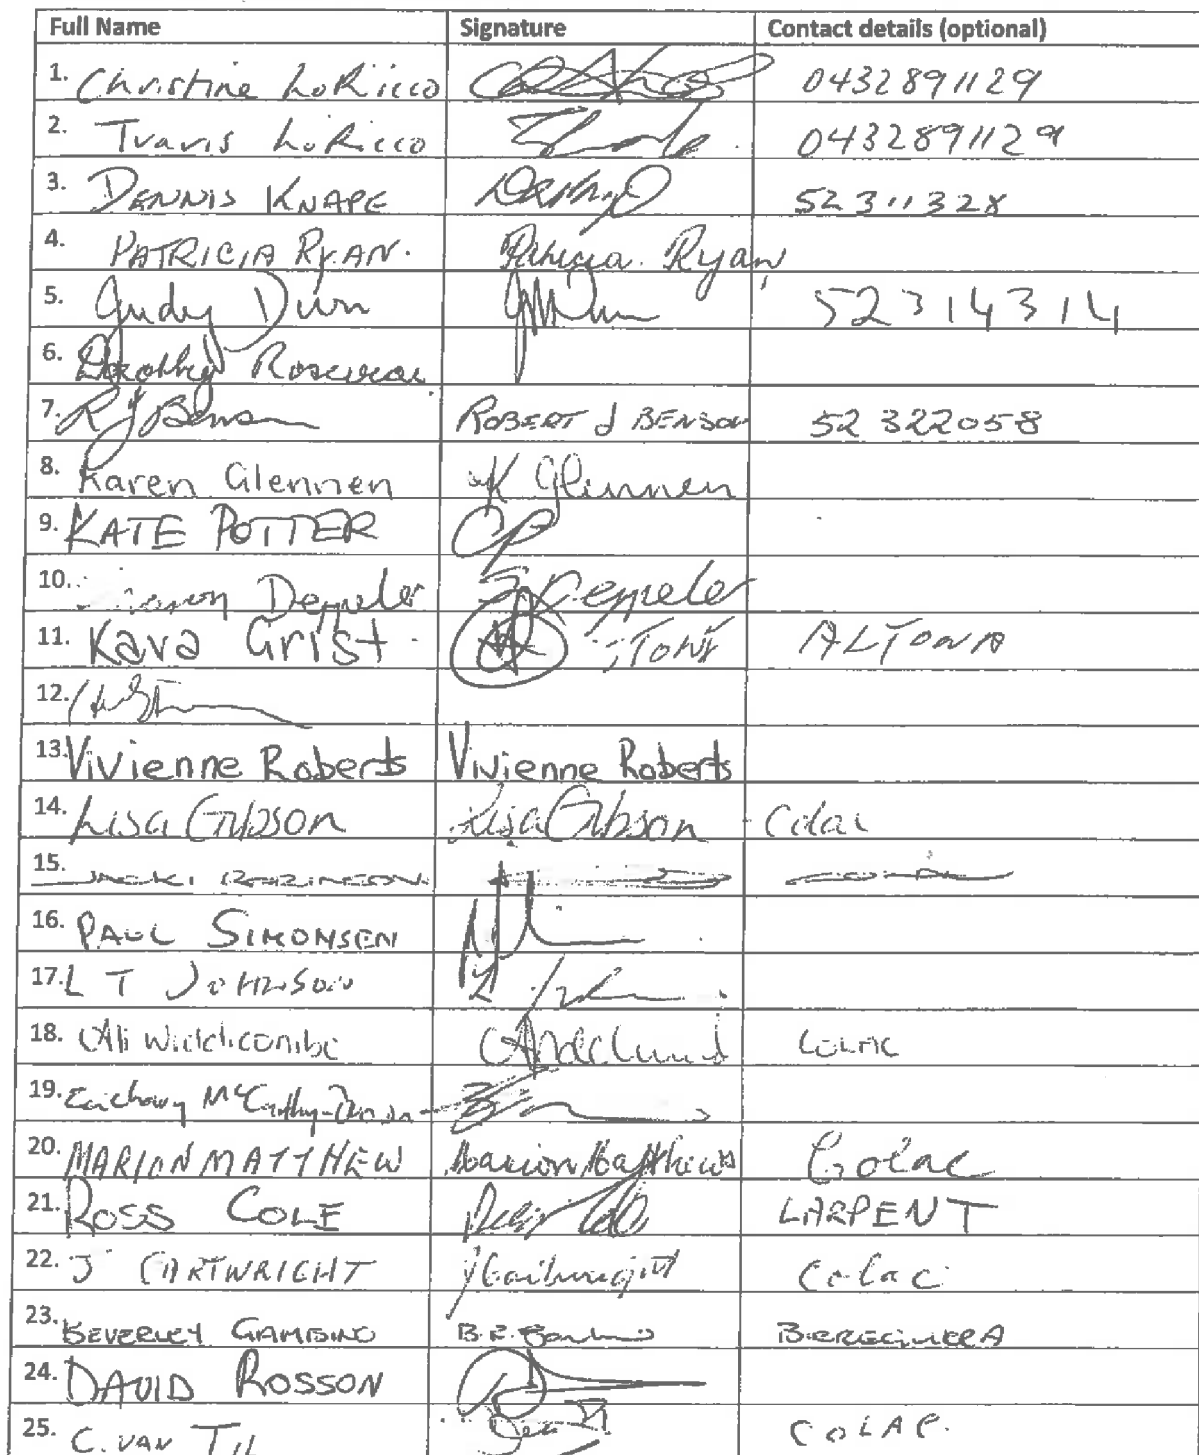 Full Name Signature Contact details (optional)
1. Christine LoRicco 0432891129
2. Travis LoRicco 0432891129
3. DENNIS KNAPE 52311328
4. PATRICIA RYAN. Patricia. Ryan
5. Judy Dunn 52314314
6. Dorothy
7. RJ Benson ROBERT J BENSON 52 322058
8. Karen Glennen K Glennen
9. KATE POTTER CP
10. Deppeler S Deppeler
11. Kara Grist TONY ALTONA
12.
13. Vivienne Roberts Vivienne Roberts
14. Lisa Gibson Lisa Gibson Colac
15. JACKI ROBINSON
16. PAUL SIMONSEN
17. L T JOHNSON
18. Ali Widdicombe COLAC
19. McCarthy
20. MARION MATTHEW Marion Matthews Colac
21. ROSS COLE Ross Cole LARPENT
22. J CARTWRIGHT J Cartwright Colac
23. BEVERLEY GAMBINO B.E. Gambino BIRREGURRA
24. DAVID ROSSON
25. C. VAN TIL COLAC.